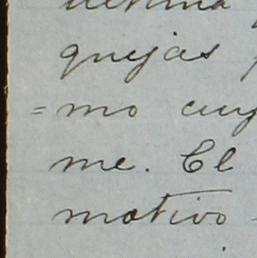 quejas
=mo cuy
me. El
motivo